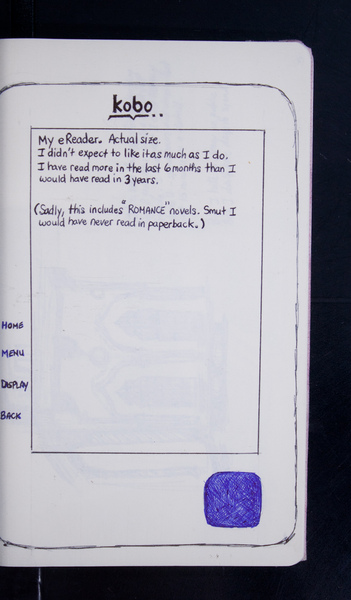 kobo..
My eReader. Actual size.
I didn't expect to like it as much as I do.
I have read more in the last 6 months than I
would have read in 3 years.
(Sadly, this includes "ROMANCE" novels. Smut I
would have never read in paperback.)
HOME
MENU
DISPLAY
BACK